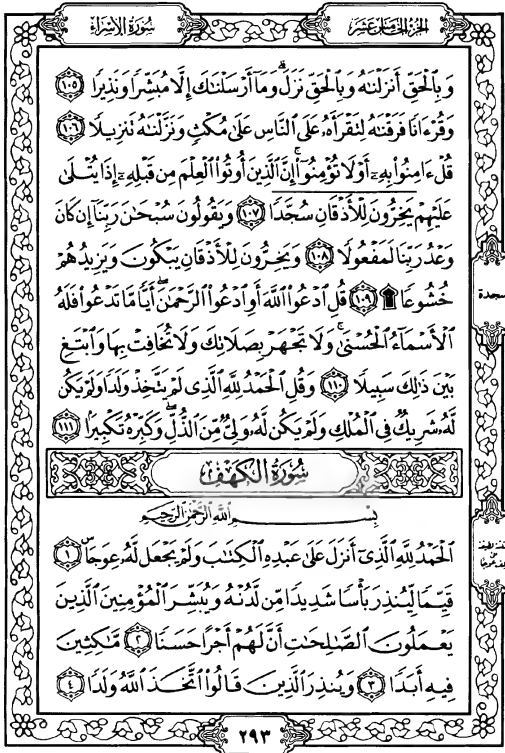 سُورَةُ الإِسْرَاءِ
الجُزْءُ الخَامِسَ عَشَرَ
وَبِالْحَقِّ أَنزَلْنَٰهُ وَبِالْحَقِّ نَزَلَ ۗ وَمَا أَرْسَلْنَٰكَ إِلَّا مُبَشِّرًا وَنَذِيرًا ١٠٥
وَقُرْءَانًا فَرَقْنَٰهُ لِتَقْرَأَهُۥ عَلَى النَّاسِ عَلَىٰ مُكْثٍ وَنَزَّلْنَٰهُ تَنزِيلًا ١٠٦
قُلْ ءَامِنُوا۟ بِهِۦٓ أَوْ لَا تُؤْمِنُوٓا۟ ۚ إِنَّ الَّذِينَ أُوتُوا۟ الْعِلْمَ مِن قَبْلِهِۦٓ إِذَا يُتْلَىٰ
عَلَيْهِمْ يَخِرُّونَ لِلْأَذْقَانِ سُجَّدًا ١٠٧ وَيَقُولُونَ سُبْحَٰنَ رَبِّنَآ إِن كَانَ
وَعْدُ رَبِّنَا لَمَفْعُولًا ١٠٨ وَيَخِرُّونَ لِلْأَذْقَانِ يَبْكُونَ وَيَزِيدُهُمْ
خُشُوعًا ۩ ١٠٩ قُلِ ادْعُوا۟ اللَّهَ أَوِ ادْعُوا۟ الرَّحْمَٰنَ ۖ أَيًّا مَّا تَدْعُوا۟ فَلَهُ
الْأَسْمَآءُ الْحُسْنَىٰ ۚ وَلَا تَجْهَرْ بِصَلَاتِكَ وَلَا تُخَافِتْ بِهَا وَابْتَغِ
بَيْنَ ذَٰلِكَ سَبِيلًا ١١٠ وَقُلِ الْحَمْدُ لِلَّهِ الَّذِى لَمْ يَتَّخِذْ وَلَدًا وَلَمْ يَكُن
لَّهُۥ شَرِيكٌ فِى الْمُلْكِ وَلَمْ يَكُن لَّهُۥ وَلِىٌّ مِّنَ الذُّلِّ ۖ وَكَبِّرْهُ تَكْبِيرًا ١١١
سُورَةُ الكَهْفِ
بِسْمِ اللَّهِ الرَّحْمَٰنِ الرَّحِيمِ
الْحَمْدُ لِلَّهِ الَّذِىٓ أَنزَلَ عَلَىٰ عَبْدِهِ الْكِتَٰبَ وَلَمْ يَجْعَل لَّهُۥ عِوَجَا ۜ ١
قَيِّمًا لِّيُنذِرَ بَأْسًا شَدِيدًا مِّن لَّدُنْهُ وَيُبَشِّرَ الْمُؤْمِنِينَ الَّذِينَ
يَعْمَلُونَ الصَّٰلِحَٰتِ أَنَّ لَهُمْ أَجْرًا حَسَنًا ٢ مَّٰكِثِينَ
فِيهِ أَبَدًا ٣ وَيُنذِرَ الَّذِينَ قَالُوا۟ اتَّخَذَ اللَّهُ وَلَدًا ٤
سجدة
٢٩٣